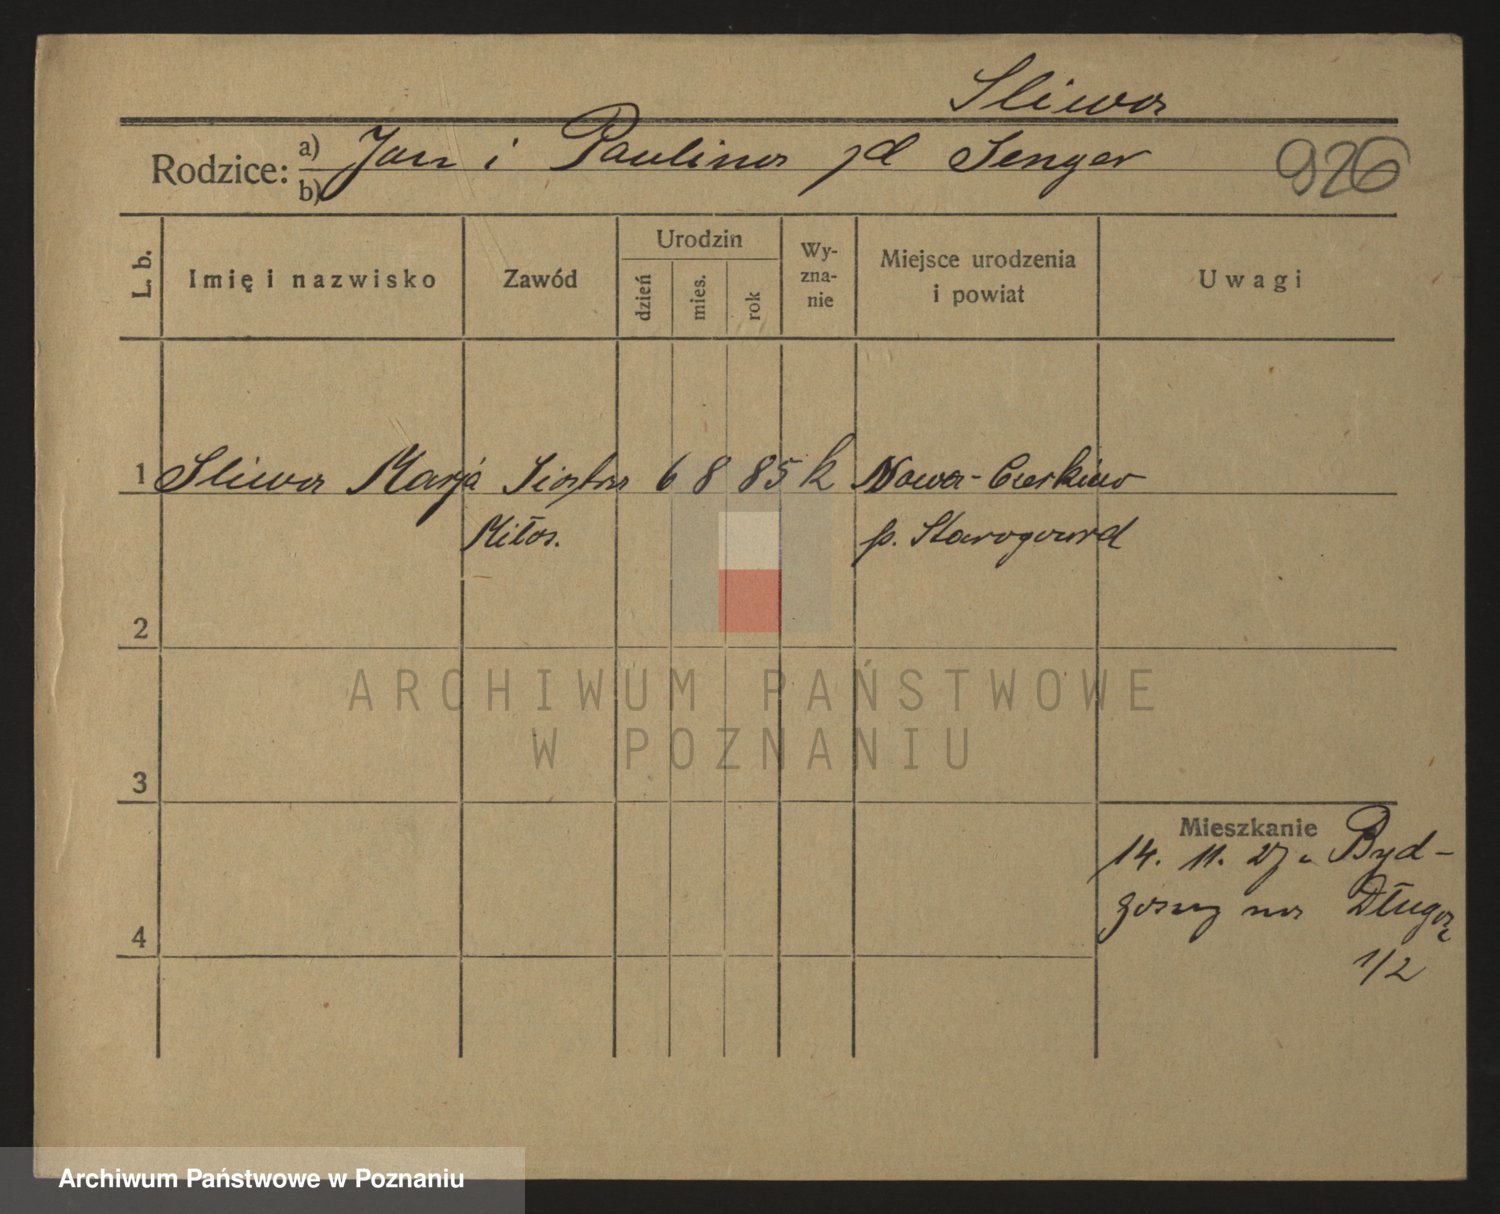 Sliwa
Rodzice: a) Jan i Paulina Senger
b)
926
L. b. Imię i nazwisko Zawód Urodzin dzień mies. rok Wy-zna-nie Miejsce urodzenia i powiat Uwagi
1 Sliwa Marja Siostra 6 8 85 k Nowa-Cerkiew
Miłos. p. Starogard
2
ARCHIWUM PAŃSTWOWE
W POZNANIU
3
Mieszkanie
14. 11. 27 Byd-
goszcz na Długosza
4
1/2
Archiwum Państwowe w Poznaniu